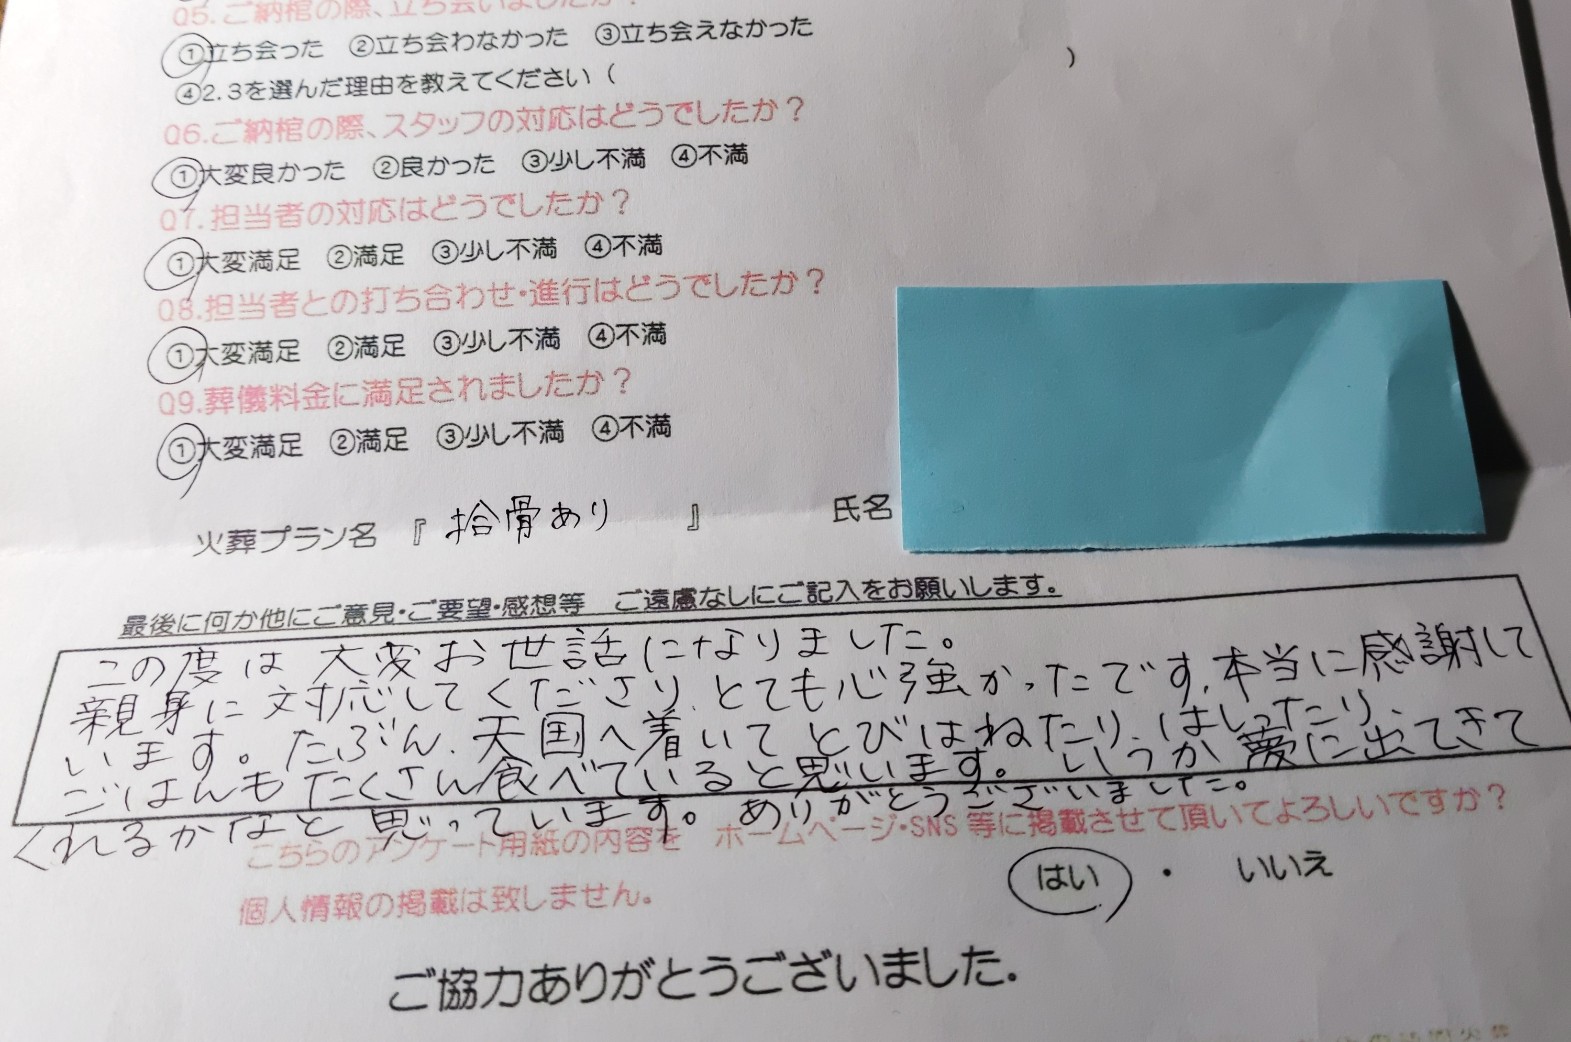 Q5.ご納棺の際、立ち会いましたか？
①立ち会った ②立ち会わなかった ③立ち会えなかった
④2.3を選んだ理由を教えてください（ ）
Q6.ご納棺の際、スタッフの対応はどうでしたか？
①大変良かった ②良かった ③少し不満 ④不満
Q7.担当者の対応はどうでしたか？
①大変満足 ②満足 ③少し不満 ④不満
Q8.担当者との打ち合わせ・進行はどうでしたか？
①大変満足 ②満足 ③少し不満 ④不満
Q9.葬儀料金に満足されましたか？
①大変満足 ②満足 ③少し不満 ④不満
火葬プラン名『拾骨あり』 氏名
最後に何か他にご意見・ご要望・感想等 ご遠慮なしにご記入をお願いします。
この度は大変お世話になりました。
親身に対応してくださり、とても心強かったです。本当に感謝して
います。たぶん、天国へ着いてとびはねたり、はしったり、
ごはんもたくさん食べていると思います。いつか夢に出てきて
くれるかなと思っています。ありがとうございました。
こちらのアンケート用紙の内容を ホームページ・SNS等に掲載させて頂いてよろしいですか？
個人情報の掲載は致しません。
はい ・ いいえ
ご協力ありがとうございました。